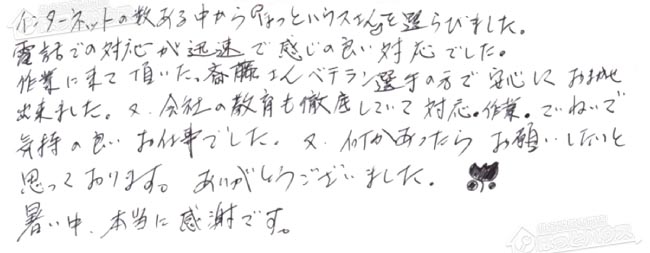 インターネットの数ある中からほっとハウスさんを選らびました。
電話での対応が迅速で感じの良い対応でした。
作業に来て頂いた、斎藤さんベテラン選手の方で安心しておまかせ
出来ました。又、会社の教育も徹底していて対応。作業。ていねいで
気持の良いお仕事でした。又、何かあったらお願いしたいと
思っております。ありがとうございました。
暑い中、本当に感謝です。
ほっとハウス